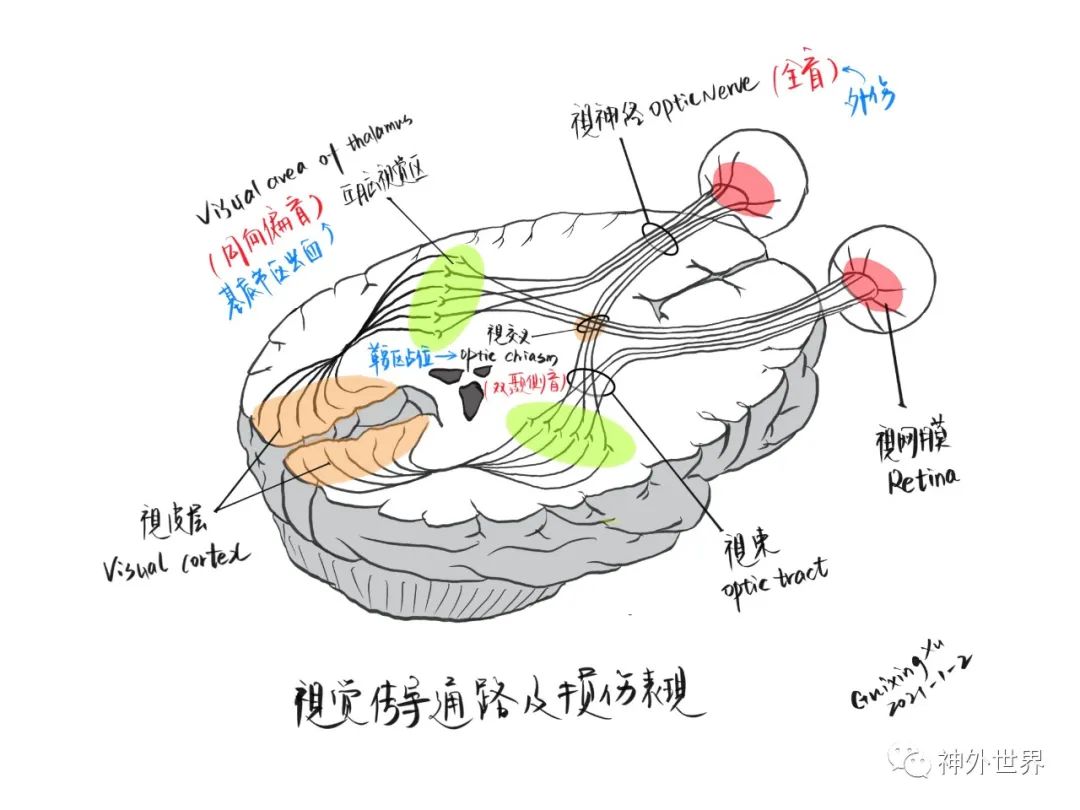 視神经 optic Nerve (全盲)
外伤
Visual area of thalamus
丘脑視觉区
(同向偏盲)
基底节区出血
視交叉
鞍区占位→optic chiasm
(双颞侧盲)
視网膜
Retina
視皮层
Visual cortex
視束
optic tract
視觉传导通路及损伤表現
Guixing Yu
2021-1-2
神外世界